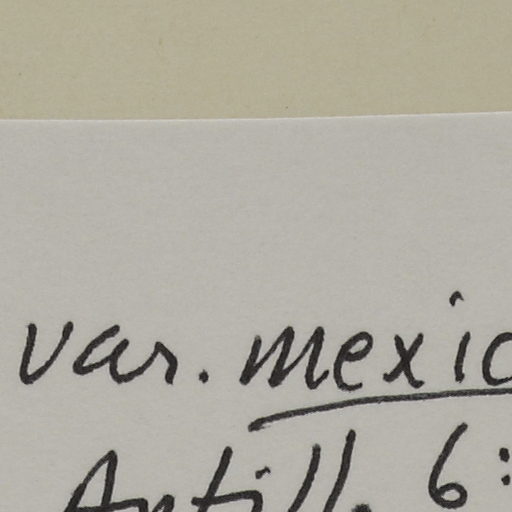 var. mexic
Antill. 6: